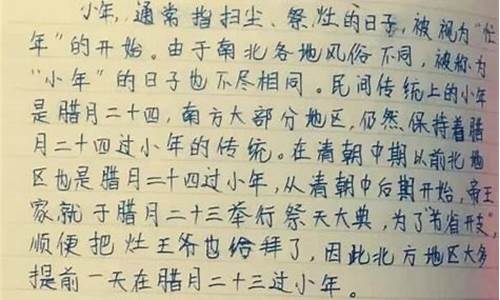 小年,通常指扫尘、祭灶的日子,被视为“忙
年”的开始。由于南北各地风俗不同,被称为
“小年”的日子也不尽相同。民间传统上的小年
是腊月二十四,南方大部分地区,仍然保持着腊
月二十四过小年的传统。在清朝中期以前北地
区也是腊月二十四过小年,从清朝中后期开始,帝王
家就于腊月二十三举行祭天大典,为了“节省开支”,
顺便把灶王爷也给拜了,因此北方地区大多
提前一天在腊月二十三过小年。